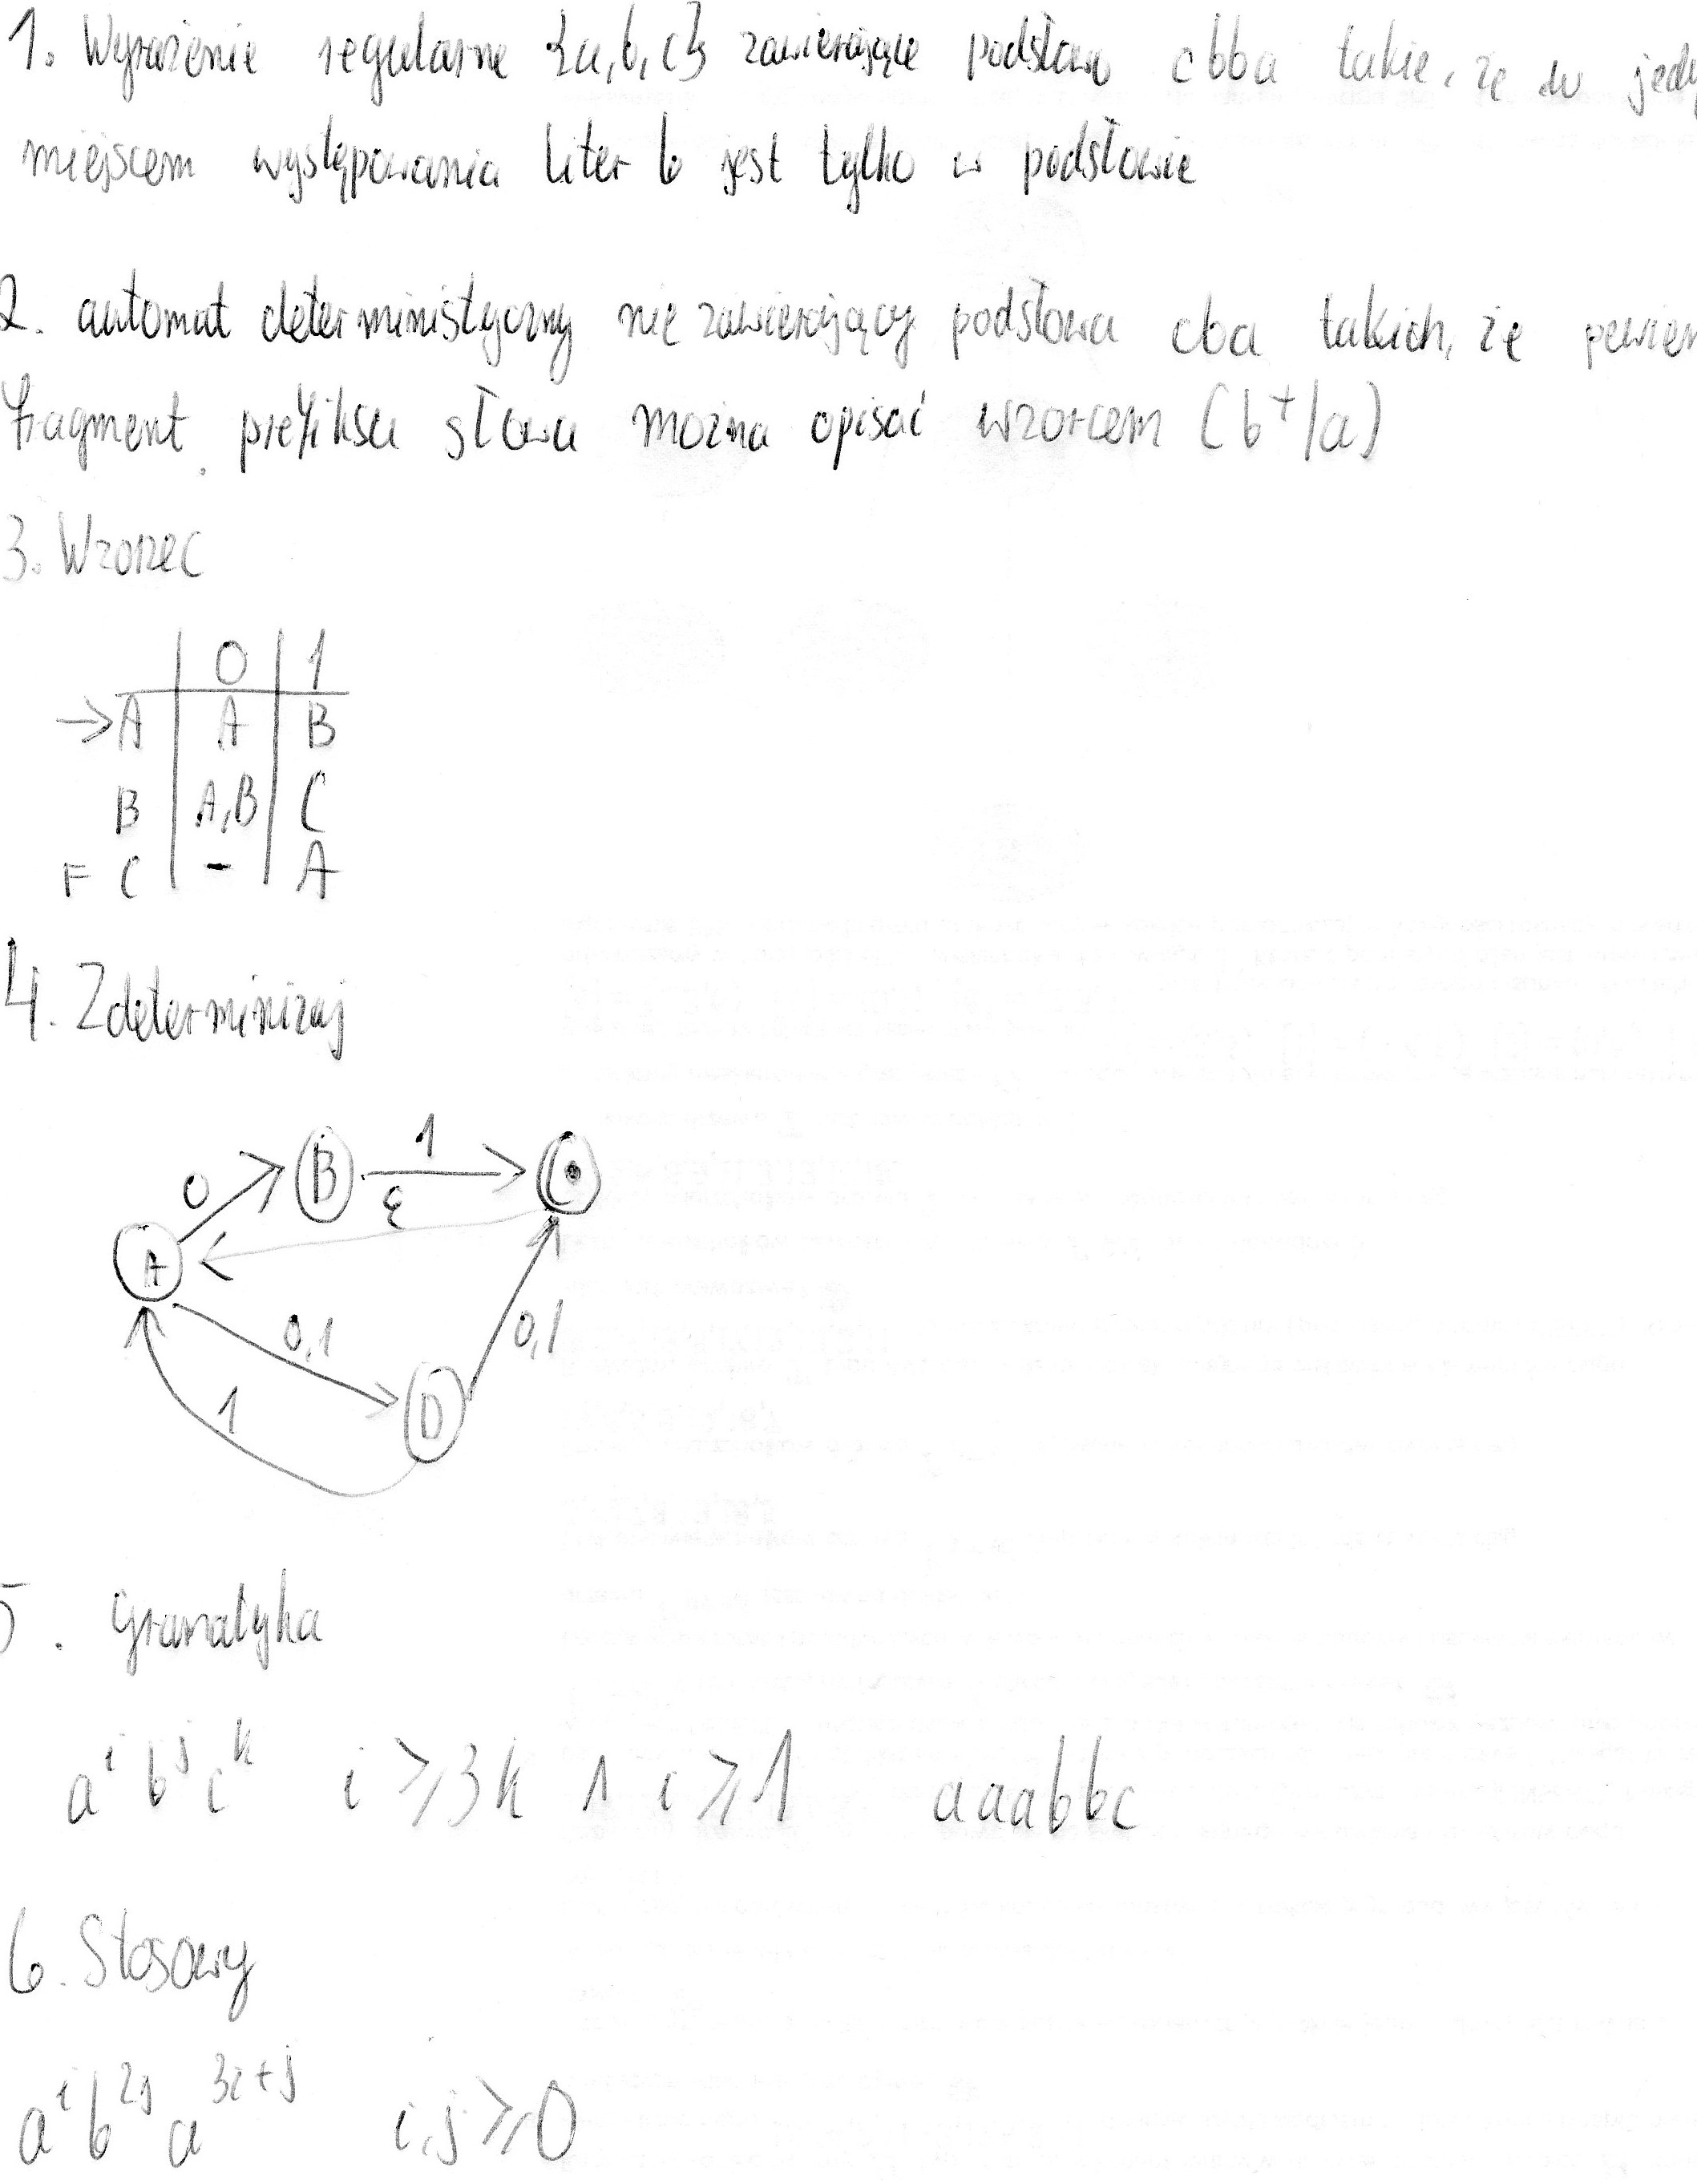 1. Wyrażenie regularne {a,b,c} zawierające podsłowo cbba takie, że w jedy
miejscem występowania liter b jest tylko w podsłowie
2. automat deterministyczny nie zawierający podsłowa cba takich, że pewien
fragment prefiksu słowa można opisać wzorcem (b⁺/a)
3. Wzorzec
0 1
→A A B
B A,B C
F C - A
4. Zdeterminizuj
1
B C
0 ε
A
0,1 0,1
1 D
5. Gramatyka
aⁱ bʲ cᵏ i ⩾ 3k ∧ i ⩾ 1 aaabbc
6. Stosowy
aⁱ b²ʲ a³ⁱ⁺ʲ i,j ⩾ 0